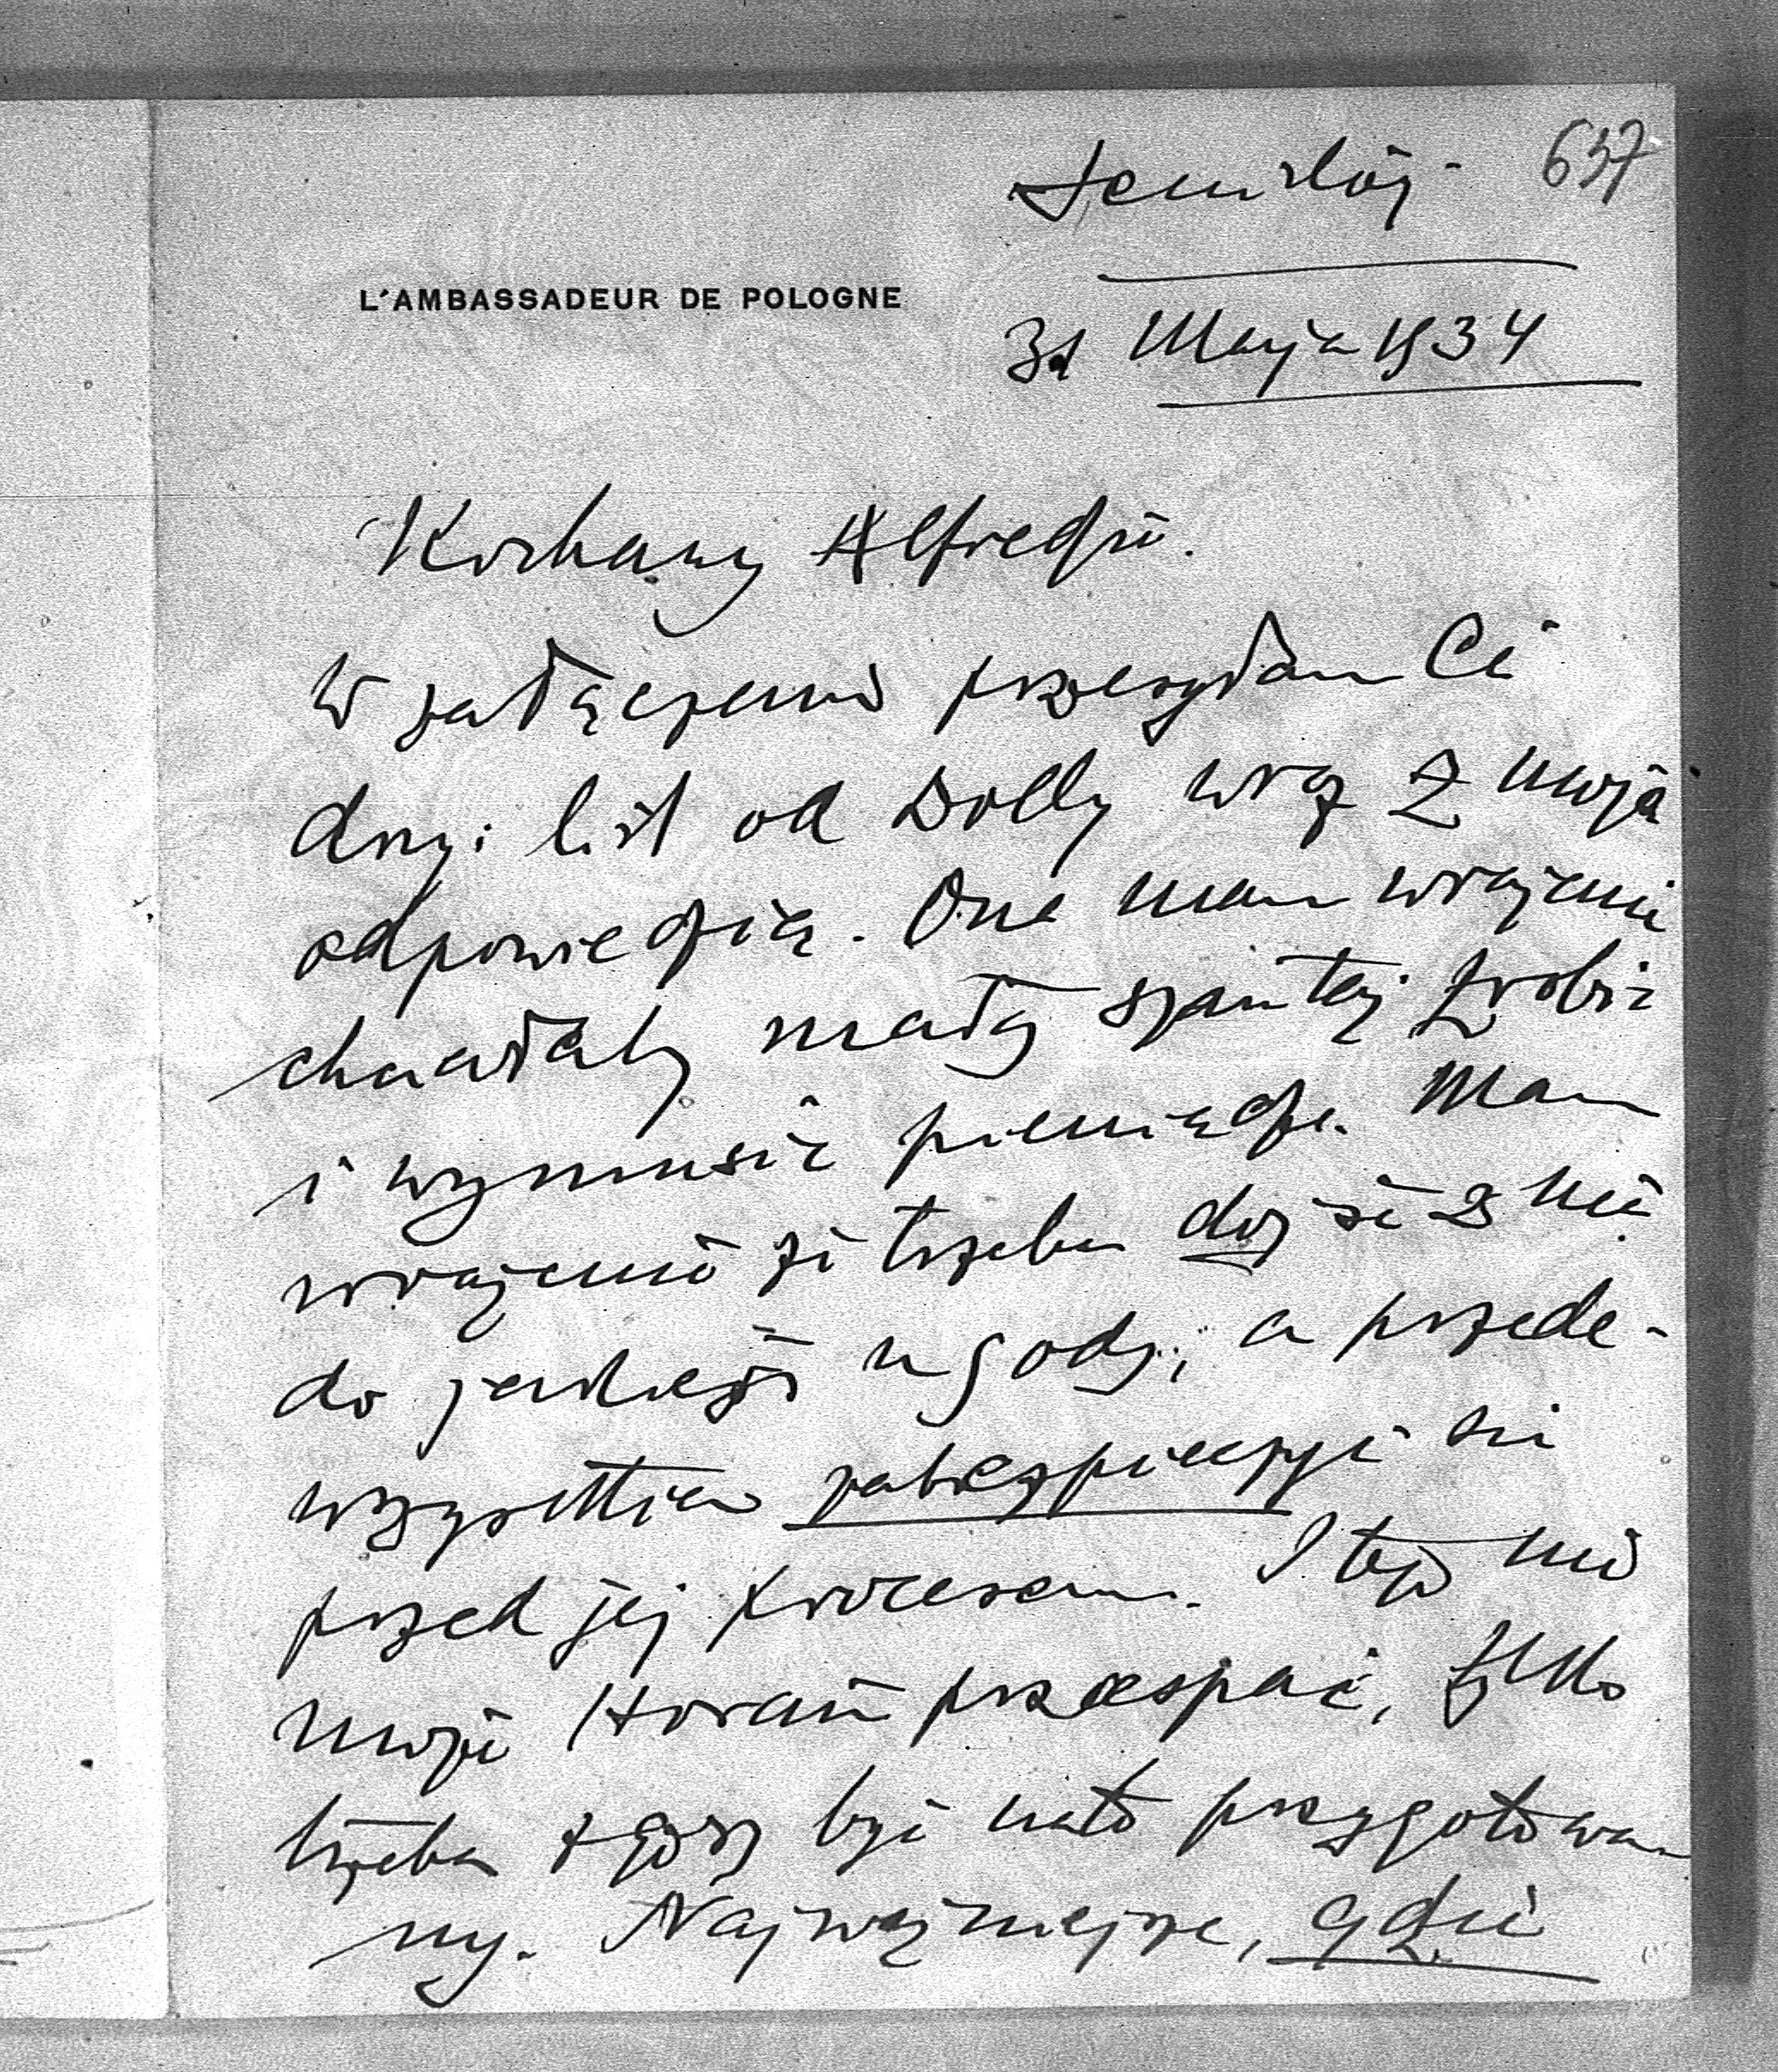 637
L'AMBASSADEUR DE POLOGNE
31 Maja 1934
Kochany Alfredzie.
W załączeniu przesyłam Ci
drugi list od Dolly wraz z moją
odpowiedzią. Ona mam wrażenie
chciałaby mały szantaż zrobić
i wymusić pieniądze. Mam
wrażenie że trzeba dojść z nią
do jakiejś ugody, a przede-
wszystkiem zabezpieczyć się
przed jej procesem. I tego nie
może przespać, tylko
trzeba z góry być na to przygotowa-
ny. Najważniejsze, gdzie